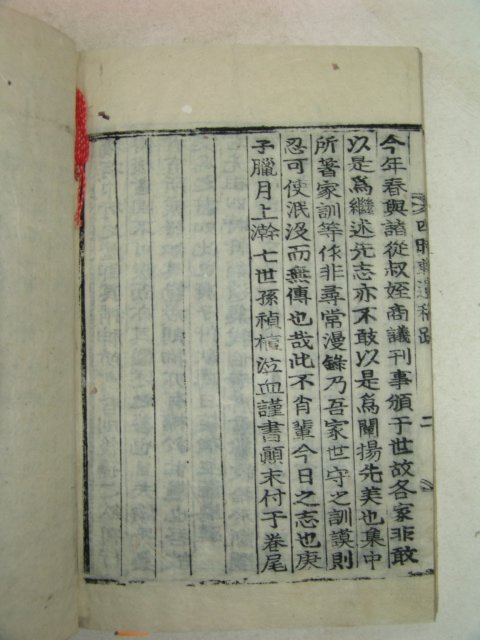 今年春與諸從叔姪商議刊事頒于世故各家非敢
以是爲繼述先志亦不敢以是爲闡揚先美也集中
所著家訓等作非尋常漫錄乃吾家世守之訓謨則
忍可使泯沒而無傳也哉此不肖輩今日之志也庚
子臘月上澣七世孫禎 泣血謹書顚末付于卷尾